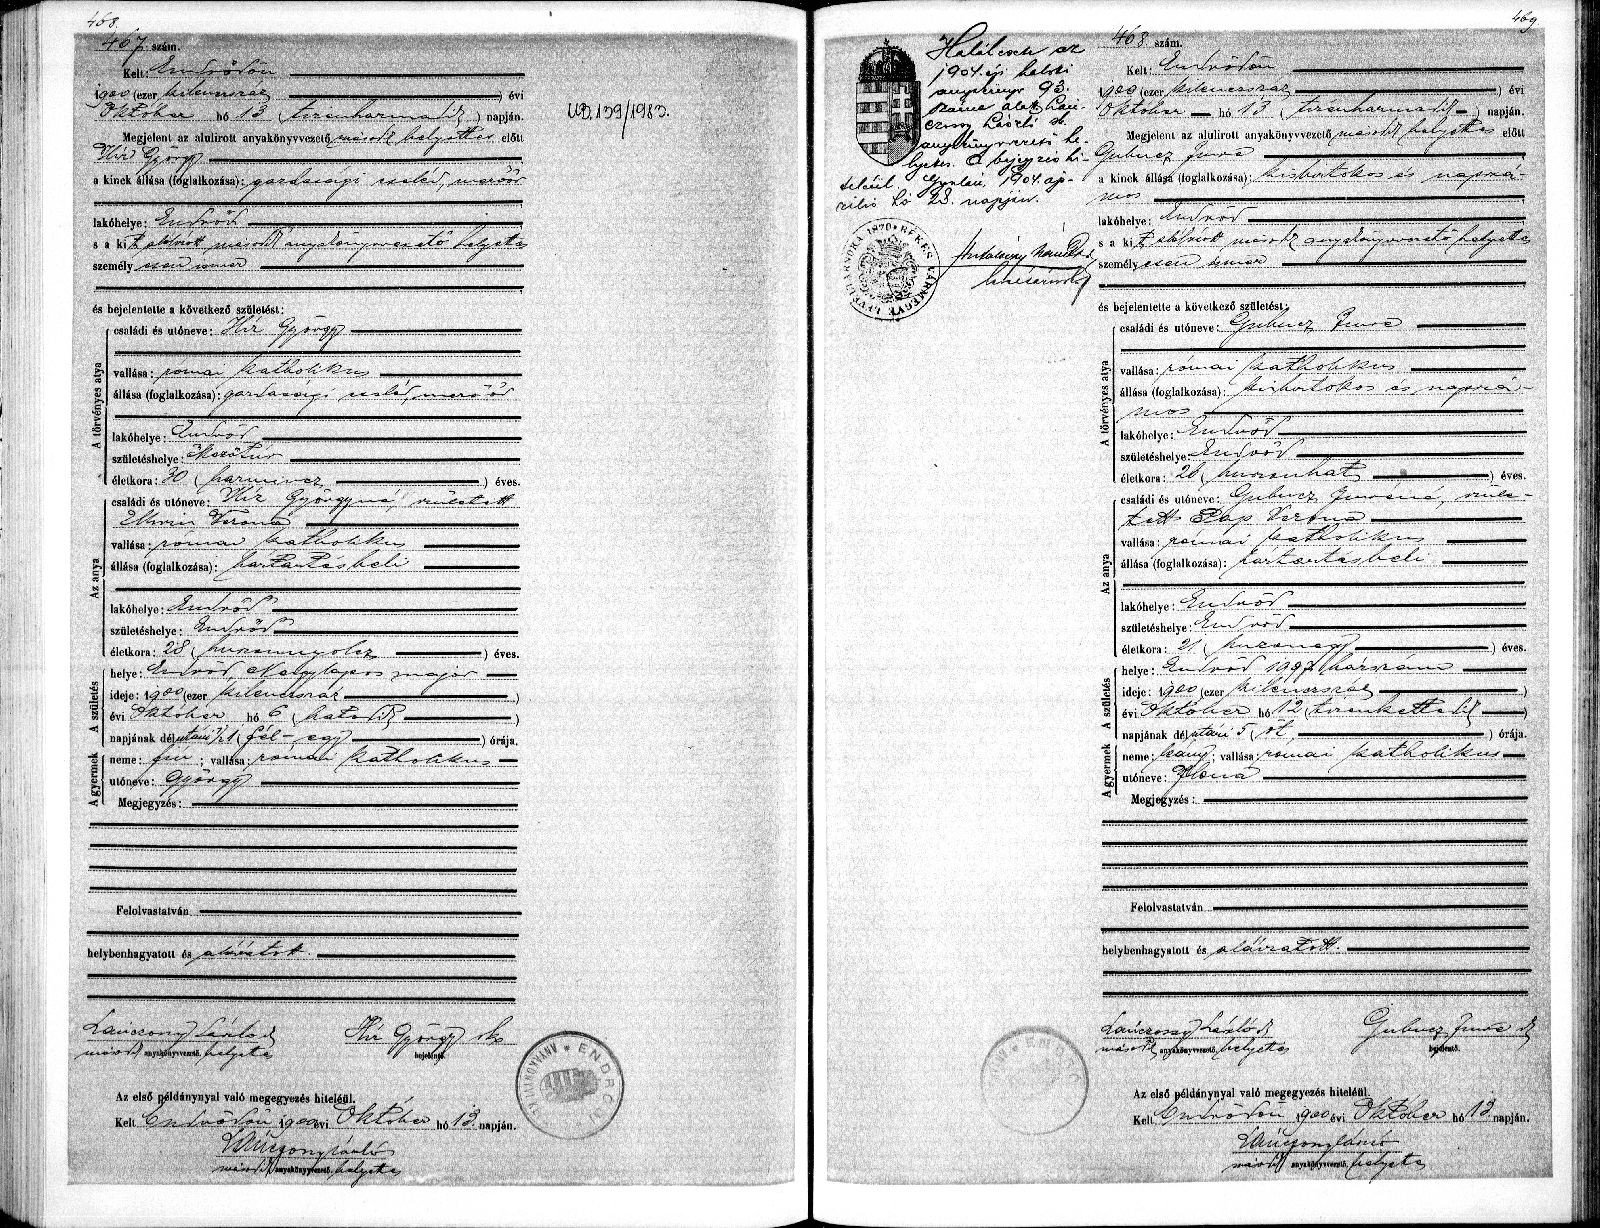 468.
467 szám.
Kelt: Endrődön
1900 (ezer kilenczszáz) évi
Október hó 13 (tizenharmadik) napján.
Megjelent az alulirott anyakönyvvezető második helyettes előtt
Hír György
a kinek állása (foglalkozása): gazdasági cseléd, mezőőr
lakóhelye: Endrőd
s a kit alólirott második anyakönyvvezető helyettes
személyesen ismer
és bejelentette a következő születést:
A törvényes atya
családi és utóneve: Hír György
vallása: római katholikus
állása (foglalkozása): gazdasági cseléd, mezőőr
lakóhelye: Endrőd
születéshelye: Mezőtúr
életkora: 30 (harmincz) éves.
Az anya
családi és utóneve: Hír Györgyné, született
Verona
vallása: római katholikus
állása (foglalkozása): háztartásbeli
lakóhelye: Endrőd
születéshelye: Endrőd
életkora: 28 (huszonnyolcz) éves.
A születés
helye: Endrőd, Nagylapos major
ideje: 1900 (ezer kilenczszáz)
évi Október hó 6 (hatodik)
napjának délutáni 1/2 1 (fél-egy) órája.
A gyermek
neme: fiu; vallása: római katholikus
utóneve: György
Megjegyzés:
Felolvastatván
helybenhagyatott és aláiratott.
Lánczony László
második anyakönyvvezető helyettes
Hír György sk
bejelentő.
ENDRŐD
Az első példánynyal való megegyezés hiteléül.
Kelt Endrődön 1900 évi Október hó 13 napján.
Lánczony László
második anyakönyvvezető helyettes
UD.139/1983.
469
Halálesete az
1904. évi helybeli
anyakönyv 93.
száma alatt Lán-
czony László sk
anyakönyvvezető he-
lyettes. A bejegyzés hi-
teléül Gyulán, 1904. áp-
rilis hó 23. napján.
BÉKÉS VÁRMEGYE LEVÉLTÁRNOKA 1870
468 szám.
Kelt: Endrődön
1900 (ezer kilenczszáz) évi
Október hó 13 (tizenharmadik) napján.
Megjelent az alulirott anyakönyvvezető második helyettes előtt
Gubucz Imre
a kinek állása (foglalkozása): kisbirtokos és napszá-
mos
lakóhelye: Endrőd
s a kit alólirott második anyakönyvvezető helyettes
személyesen ismer
és bejelentette a következő születést:
A törvényes atya
családi és utóneve: Gubucz Imre
vallása: római katholikus
állása (foglalkozása): kisbirtokos és napszá-
mos
lakóhelye: Endrőd
születéshelye: Endrőd
életkora: 26 (huszonhat) éves.
Az anya
családi és utóneve: Gubucz Imréné, szüle-
tett Pap Verona
vallása: római katholikus
állása (foglalkozása): háztartásbeli
lakóhelye: Endrőd
születéshelye: Endrőd
életkora: 21 (huszonegy) éves.
A születés
helye: Endrőd 1997 házszám
ideje: 1900 (ezer kilenczszáz)
évi Október hó 12 (tizenkettedik)
napjának délutáni 5 (öt) órája.
A gyermek
neme: leány; vallása: római katholikus
utóneve: Ilona
Megjegyzés:
Felolvastatván
helybenhagyatott és aláiratott.
Lánczony László
második anyakönyvvezető helyettes
Gubucz Imre
bejelentő.
ENDRŐD
Az első példánynyal való megegyezés hiteléül.
Kelt Endrődön 1900 évi Október hó 13 napján.
Lánczony László
második anyakönyvvezető helyettes